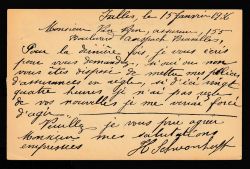 Ixelles, le 15 Janvier 1926
Monsieur Van , assureur, 155
Boulevard Bruxelles
Pour la dernière fois, je vous écris
pour vous demander, si oui ou non
vous êtes disposé de mettre mes polices
d'assurances en règle, si d'ici vingt
quatre heures je n'ai pas reçu
de vos nouvelles je me verrai forcé
d'agir.
Veuillez, je vous prie agréer
Monsieur mes salutations
empressées
H